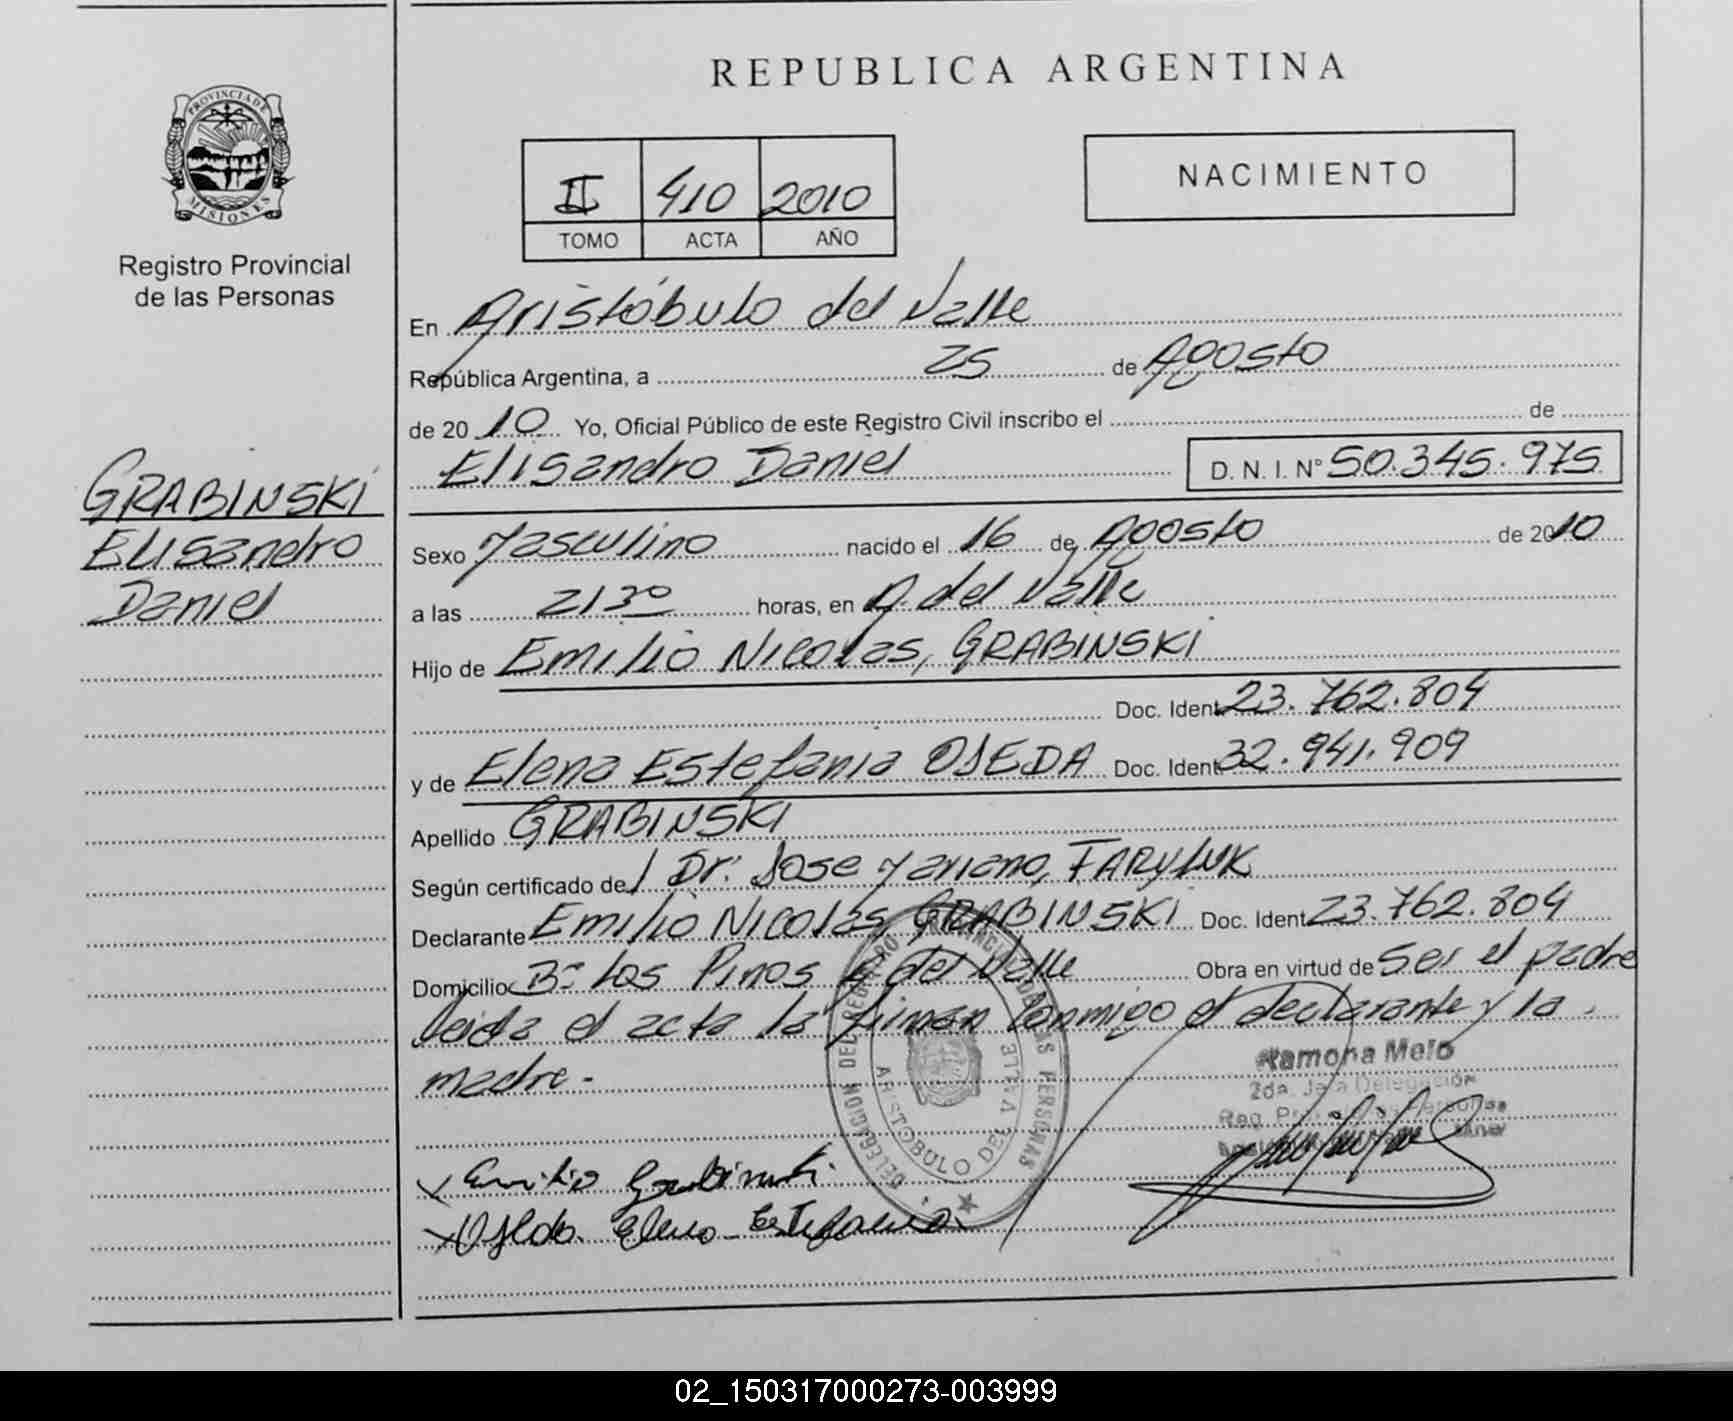 REPUBLICA ARGENTINA
PROVINCIA DE
MISIONES
Registro Provincial
de las Personas
II 410 2010
TOMO ACTA AÑO
NACIMIENTO
En Aristóbulo del Valle
República Argentina, a 25 de Agosto
de 2010 Yo, Oficial Público de este Registro Civil inscribo el de
Elisandro Daniel D. N. I. N° 50.345.975
GRABINSKI
Elisandro
Daniel
Sexo Masculino nacido el 16 de Agosto de 2010
a las 21 30 horas, en A. del Valle
Hijo de Emilio Nicolas, GRABINSKI
Doc. Ident. 23.762.804
y de Elena Estefania OJEDA Doc. Ident. 32.941.909
Apellido GRABINSKI
Según certificado del Dr: Jose Mariano, TARYLUK
Declarante Emilio Nicolas, GRABINSKI Doc. Ident. 23.762.804
Domicilio B° Los Pinos A del Valle Obra en virtud de Ser el padre
leida el acta la firman conmigo el declarante y la
madre.-
DELEGACION DEL REGISTRO PROVINCIAL DE LAS PERSONAS
ARISTOBULO DEL VALLE
Ramona Melo
2da. Jefa Delegación
Emilio Grabinski
Ojeda Elena Estefania
02_150317000273-003999